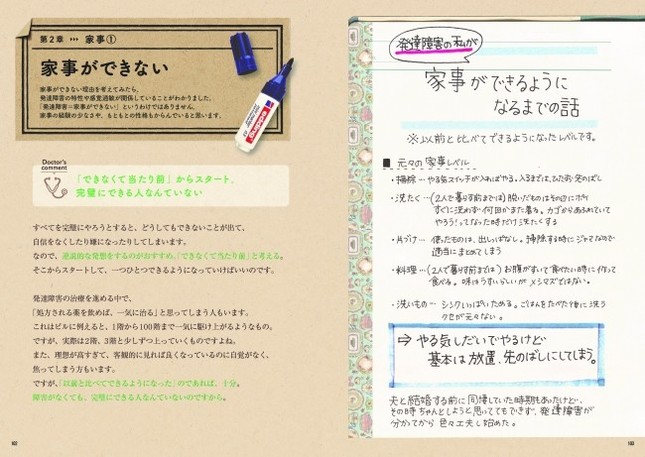 第2章 … 家事①
家事ができない
家事ができない理由を考えてみたら、
発達障害の特性や感覚過敏が関係していることがわかりました。
「発達障害＝家事ができない」というわけではありません。
家事の経験の少なさや、もともとの性格もからんでいると思います。
edding
Doctor's
comment
「できなくて当たり前」からスタート。
完璧にできる人なんていない
すべてを完璧にやろうとすると、どうしてもできないことが出て、
自信をなくしたり嫌になったりしてしまいます。
なので、逆説的な発想をするのがおすすめ。「できなくて当たり前」と考える。
そこからスタートして、一つひとつできるようになっていけばいいのです。
発達障害の治療を進める中で、
「処方される薬を飲めば、一気に治る」と思ってしまう人もいます。
これはビルに例えると、1階から100階まで一気に駆け上がるようなもの。
ですが、実際は2階、3階と少しずつ上っていくものですよね。
また、理想が高すぎて、客観的に見れば良くなっているのに自覚がなく、
焦ってしまう方もいます。
ですが、「以前と比べてできるようになった」のであれば、十分。
障害がなくても、完璧にできる人なんていないのですから。
102
発達障害の私が
家事ができるように
なるまでの話
※以前と比べてできるようになったレベルです。
■ 元々の家事レベル
・掃除…やる気スイッチが入ればやる。入るまでは、ひたすら先のばし
・洗たく…(2人で暮らす前までは)脱いだものはその辺に
すぐに洗わず何回かまた着る。カゴからあふれていて
やろう!ってなった時だけ洗たくする
・片づけ…使ったものは、出しっぱなし。掃除する時にジャマなので
適当にまとめてしまう
・料理…(2人で暮らす前までは)お腹がすいて食べたい時に作って
食べる。味はうすいらしいがメシマズではない。
・洗いもの…シンクいっぱいためる。ごはんをたべた後に洗う
クセが元々ない。
⇒ やる気しだいでやるけど
基本は放置、先のばしにしてしまう。
夫と結婚する前に同棲していた時期もあったけど、
その時ちゃんとしようと思っててもできず、発達障害が
分かってから色々工夫し始めた。
103